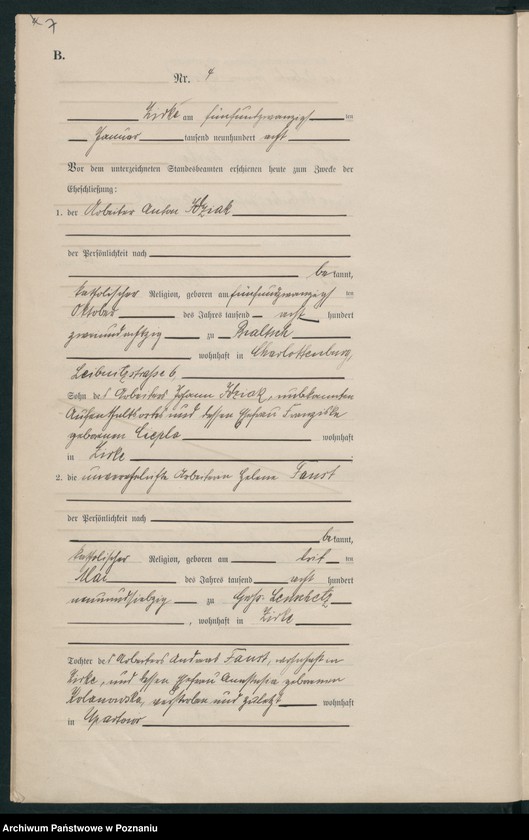 7
B.
Nr. 4
Zirke am fünfundzwanzigsten
Januar tausend neunhundert acht
Vor dem unterzeichneten Standesbeamten erschienen heute zum Zwecke der
Eheschließung:
1. der Arbeiter Anton
der Persönlichkeit nach
bekannt,
katholischer Religion, geboren am fünfundzwanzigsten
Oktober des Jahres tausend acht hundert
zweiundachtzig zu
wohnhaft in Charlottenburg,
Leibnitzstraße 6
Sohn des Arbeiters Johann unbekannten
Aufenthaltsortes und dessen Ehefrau Franziska
geborenen Ciepla wohnhaft
in Zirke
2. die unverehelichte Arbeiterin Helene Faust
der Persönlichkeit nach
bekannt,
katholischer Religion, geboren am ten
Mai des Jahres tausend acht hundert
neunundsiebzig zu
, wohnhaft in Zirke
Tochter des Arbeiters Andreas Faust, wohnhaft in
Zirke, und dessen Ehefrau Anastasia geborenen
verstorben und zuletzt wohnhaft
in
Archiwum Państwowe w Poznaniu